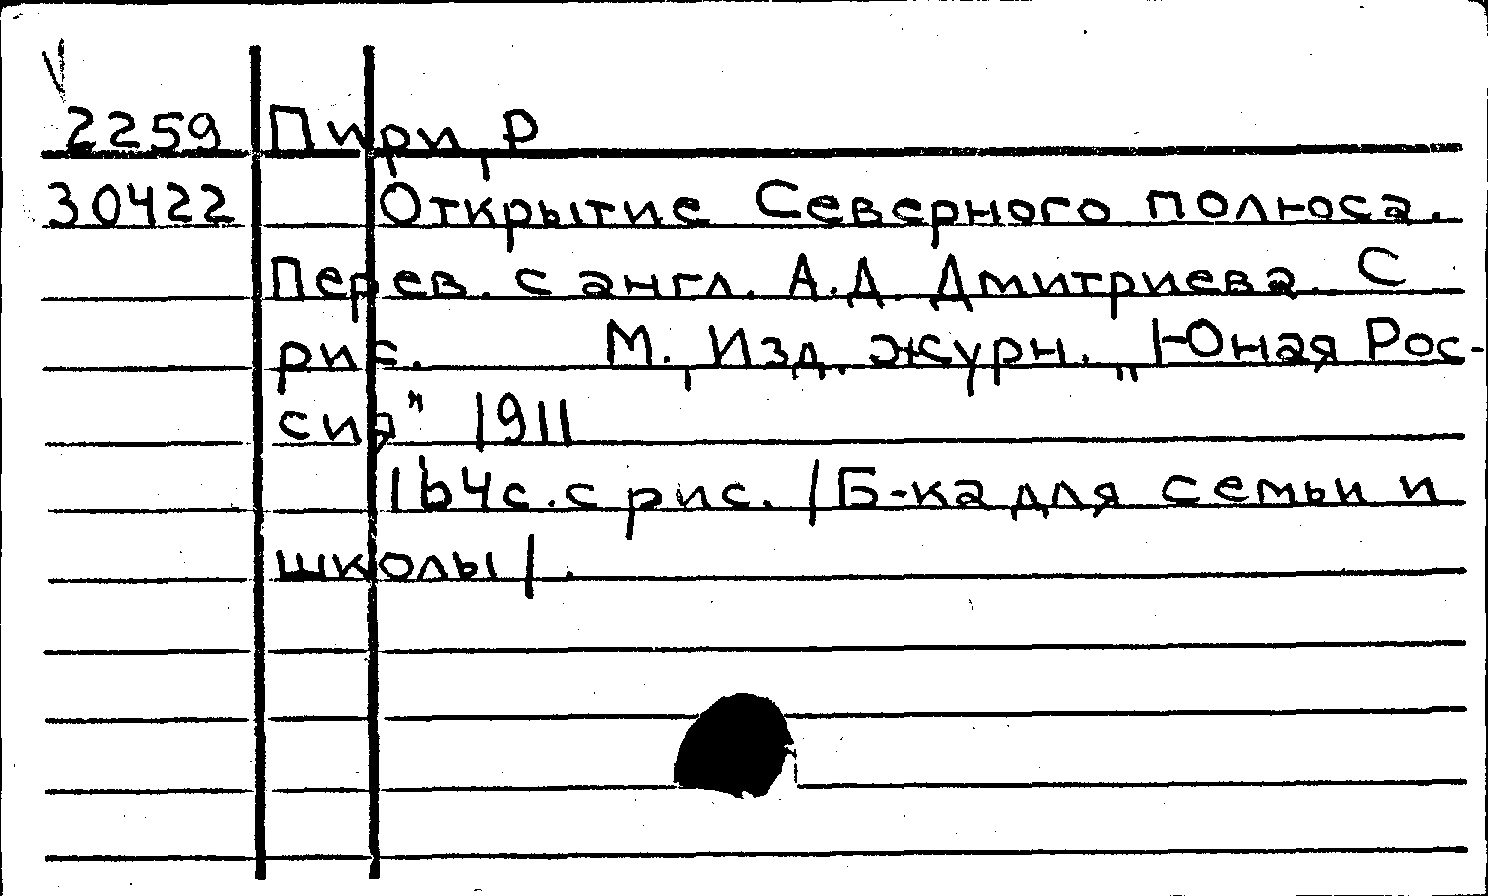 2259 Пири, Р
30422 Открытие Северного полюса.
Перев. с англ. А.Д. Дмитриева. С
рис. М., Изд. журн. „Юная Рос-
сия" 1911
164 с. с рис. /Б-ка для семьи и
школы/.